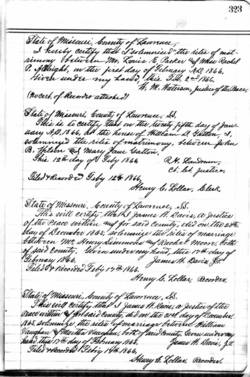 323
State of Missouri, County of Lawrence
I hereby certify that I solemnized the rites of mat-
rimony between Mr. Louis C. Parker and Miss Rachel
on the first day of February A.D. 1866.
Given under my hand, this Feb. 2nd 1866
Justice of the Peace
State of Missouri County of Lawrence, SS.
This is to certify that on the twenty fifth day of Janu-
ary A.D. 1866, at the house of
solemnized the rites of matrimony between John
and Mary Jane
This 10th day of Feby 1866
Filed & Recorded Feby 12th 1866.
Henry C. Lollar, Clerk
State of Missouri, County of Lawrence, SS.
This will certify that I James H. Davis, a justice
of the peace within and for said county, did on the
day of December 1865, solemnize the rites of marriage
between Mr. Henry Simmons and both
of said County. Given under my hand, this 10th day of
February 1866.
James H. Davis, J.P.
Filed & recorded Feby 17th 1866.
Henry C. Lollar, Recorder
State of Missouri, County of Lawrence, SS.
This will certify that I James H. Davis, a justice of the
peace within and for said county, did on the 31st day of December
1865, solemnize the rites of marriage between William
Vaughan & Vaughan, both of said County. Given under my
hand this 10th day of February 1866.
James H. Davis, J.P.
Filed & Recorded Feby 17th 1866,
Henry C. Lollar, Recorder